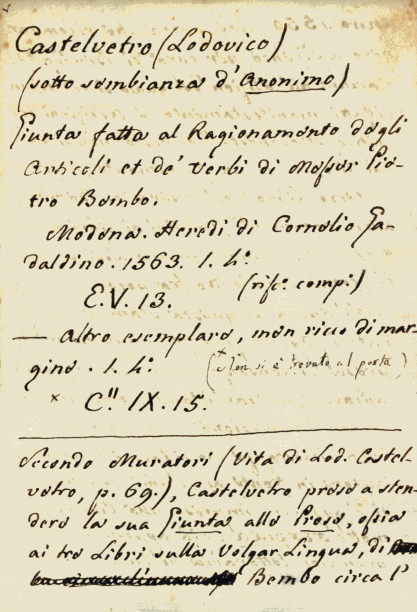 Castelvetro (Lodovico)
(sotto sembianza d'Anonimo)
Giunta fatta al Ragionamento degli
Articoli et de' Verbi di Messer Pie-
tro Bembo.
Modena. Heredi di Cornelio Ga-
daldino. 1563. 1. 4.º
(rifº. comp:)
E.V. 13.
— altro esemplare, men ricco di mar-
gine. 1. 4.º (* Non si è trovato al posto)
* C.II IX. 15.
Secondo Muratori (Vita di Lod. Castel-
vetro, p. 69.), Castelvetro prese a sten-
dere la sua Giunta alle Prose, ossia
ai tre Libri sulla Volgar Lingua, di
Bembo circa l'